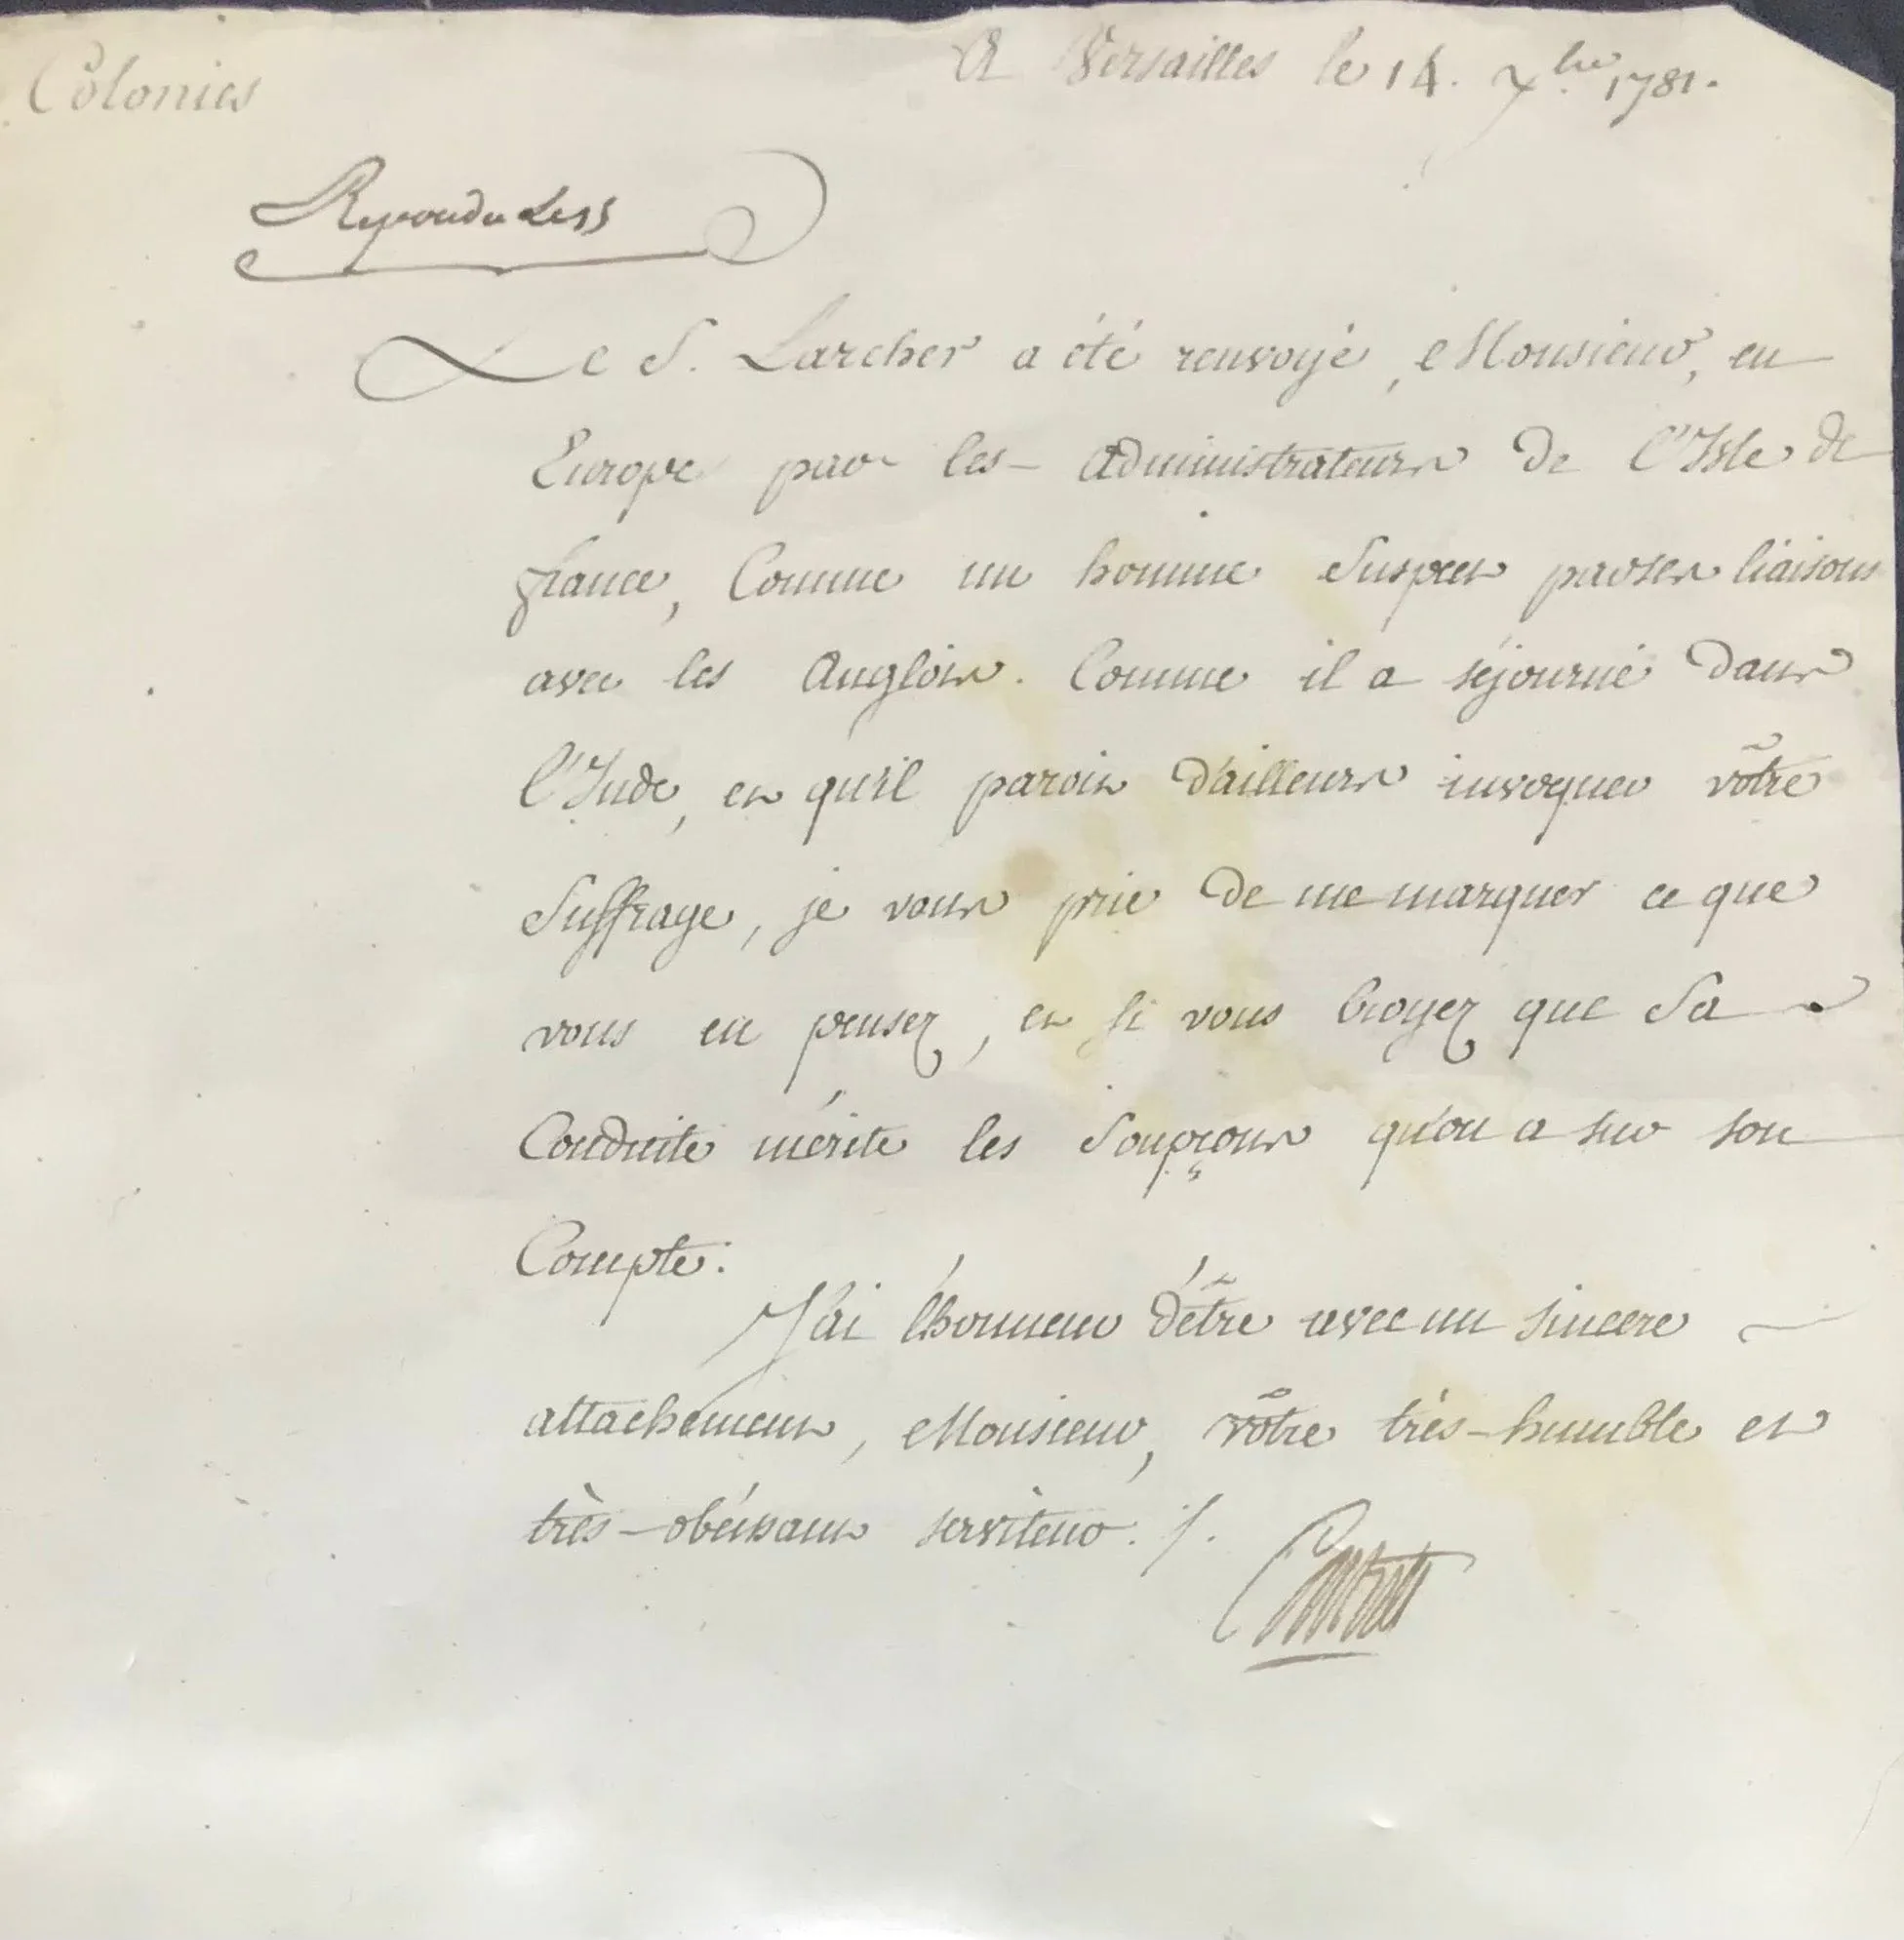 Colonies
A Versailles le 14. 7.bre 1781.
Repondu Le
Le S. Larcher a été renvoyé, Monsieur, en
Europe par les administrateurs de l'Isle de
france, Comme un homme Suspect par ses liaisons
avec les Anglois. Comme il a séjourné dans
l'Inde, et qu'il paroit d'ailleurs invoquer vôtre
Suffrage, je vous prie de me marquer ce que
vous en pensez, et si vous croyez que Sa
Conduite mérite les Soupçons qu'on a sur son
Compte.
J'ai l'honneur d'être avec un sincere
attachement, Monsieur, vôtre très-humble et
très-obéissant serviteur. /.
Castries